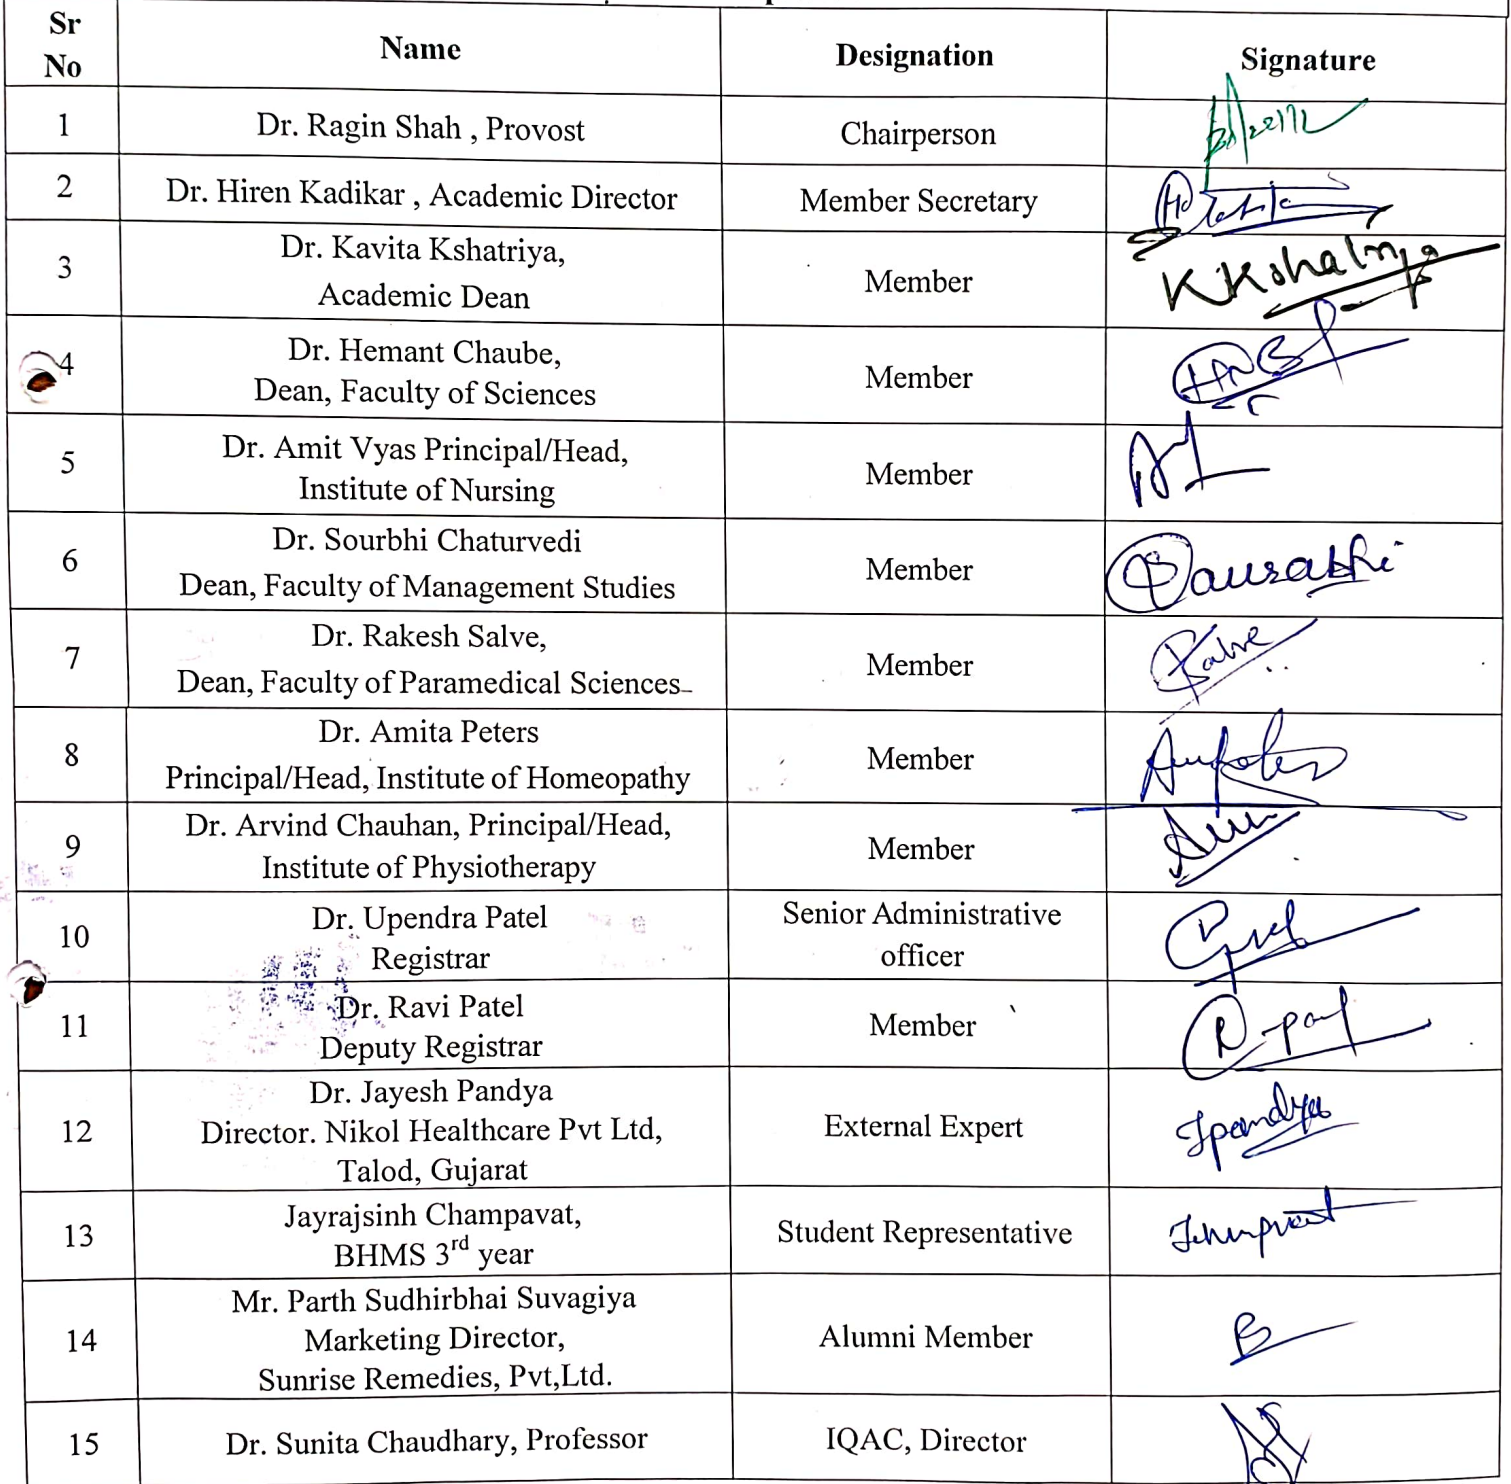 Sr
No
Name
Designation
Signature
1
Dr. Ragin Shah , Provost
Chairperson
2
Dr. Hiren Kadikar , Academic Director
Member Secretary
3
Dr. Kavita Kshatriya,
Academic Dean
Member
K Kshatriya
4
Dr. Hemant Chaube,
Dean, Faculty of Sciences
Member
5
Dr. Amit Vyas Principal/Head,
Institute of Nursing
Member
6
Dr. Sourbhi Chaturvedi
Dean, Faculty of Management Studies
Member
7
Dr. Rakesh Salve,
Dean, Faculty of Paramedical Sciences
Member
8
Dr. Amita Peters
Principal/Head, Institute of Homeopathy
Member
9
Dr. Arvind Chauhan, Principal/Head,
Institute of Physiotherapy
Member
10
Dr. Upendra Patel
Registrar
Senior Administrative
officer
11
Dr. Ravi Patel
Deputy Registrar
Member
12
Dr. Jayesh Pandya
Director. Nikol Healthcare Pvt Ltd,
Talod, Gujarat
External Expert
Jpandya
13
Jayrajsinh Champavat,
BHMS 3rd year
Student Representative
14
Mr. Parth Sudhirbhai Suvagiya
Marketing Director,
Sunrise Remedies, Pvt,Ltd.
Alumni Member
15
Dr. Sunita Chaudhary, Professor
IQAC, Director